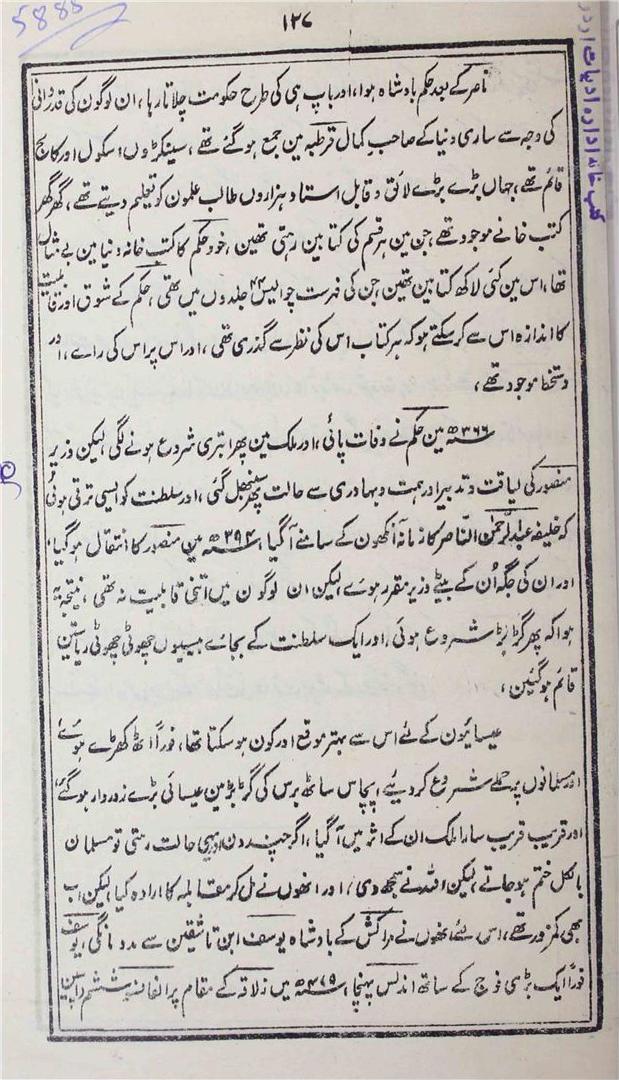 5888
۱۲۷
کتب خانہ ادارہ ادبیات اردو
ناصر کے بعد حکم بادشاہ ہوا، اور باپ ہی کی طرح حکومت چلاتا رہا، ان لوگون کی قدردانی
کی وجہ سے ساری دنیا کے صاحبِ کمال قرطبہ مین جمع ہو گئے تھے، سینکڑوں اسکول اور کالج
قائم تھے، جہاں بڑے بڑے لائق و قابل استاد ہزاروں طالب علمون کو تعلیم دیتے تھے، گھر گھر
کتب خانے موجود تھے، جن مین ہر قسم کی کتابین رہتی تھین، خود حکم کا کتب خانہ دنیا مین بے مثال
تھا، اس مین کئی لاکھ کتابین تھین، جن کی فہرست چوالیس ۴۴ جلدوں میں تھی، حکم کے شوق اور قابلیت
کا اندازہ اس سے کر سکتے ہو کہ ہر کتاب اس کی نظر سے گذری تھی، اور اس پر اس کی راے، اور
دستخط موجود تھے،
۳۶۶ھ مین حکم نے وفات پائی، اور ملک مین پھر ابتری شروع ہونے لگی لیکن وزیر
منصور کی لیاقت و تدبیر اور ہمت و بہادری سے حالت پھر سنبھل گئی، اور سلطنت کو ایسی ترقی ہوئی
کہ خلیفہ عبدالرحمٰن النّاصر کا زمانہ آنکھون کے سامنے آ گیا، ۳۹۲ھ مین منصور کا انتقال ہو گیا،
اور ان کی جگہ اُن کے بیٹے وزیر مقرر ہوے، لیکن ان لوگوں میں اتنی قابلیت نہ تھی، نتیجہ یہ
ہوا کہ پھر گڑبڑ شروع ہوئی، اور ایک سلطنت کے بجاے بیسیوں چھوٹی چھوٹی ریاستین
قائم ہو گئین،
عیسائیون کے لئے اس سے بہتر موقع اور کون ہو سکتا تھا، فوراً اٹھ کھڑے ہوے
اور مسلمانوں پر حملے شروع کر دیئے، پچاس ساٹھ برس کی گڑبڑ مین عیسائی بڑے زور دار ہو گئے
اور قریب قریب سارا ملک ان کے اثر میں آ گیا، اگر چند دن اور یہی حالت رہتی تو مسلمان
بالکل ختم ہو جاتے، لیکن اللہ نے سمجھ دی، اور انھوں نے مل کر مقابلہ کا ارادہ کیا لیکن اب
بھی کمزور تھے، اس لئے انھوں نے مراکش کے بادشاہ یوسف ابن تاشقین سے مدد مانگی، یوسف
فوراً ایک بڑی فوج کے ساتھ اندلس پہنچا، ۴۷۹ھ میں زلاقہ کے مقام پر الفانسو ششم